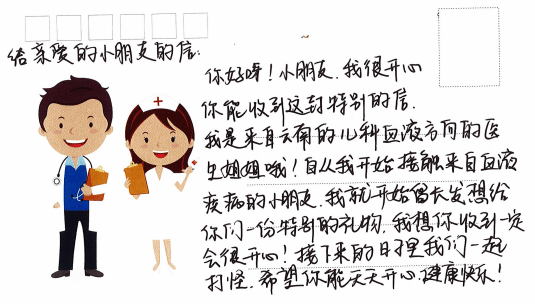 给亲爱的小朋友的信：
你好呀！小朋友，我很开心
你能收到这封特别的信．
我是来自云南的儿科血液方向的医
生姐姐哦！自从我开始接触来自血液
疾病的小朋友，我就开始留长发，想给
你们一份特别的礼物，我想你收到一定
会很开心！接下来的日子里我们一起
打怪．希望你能天天开心，健康快乐！